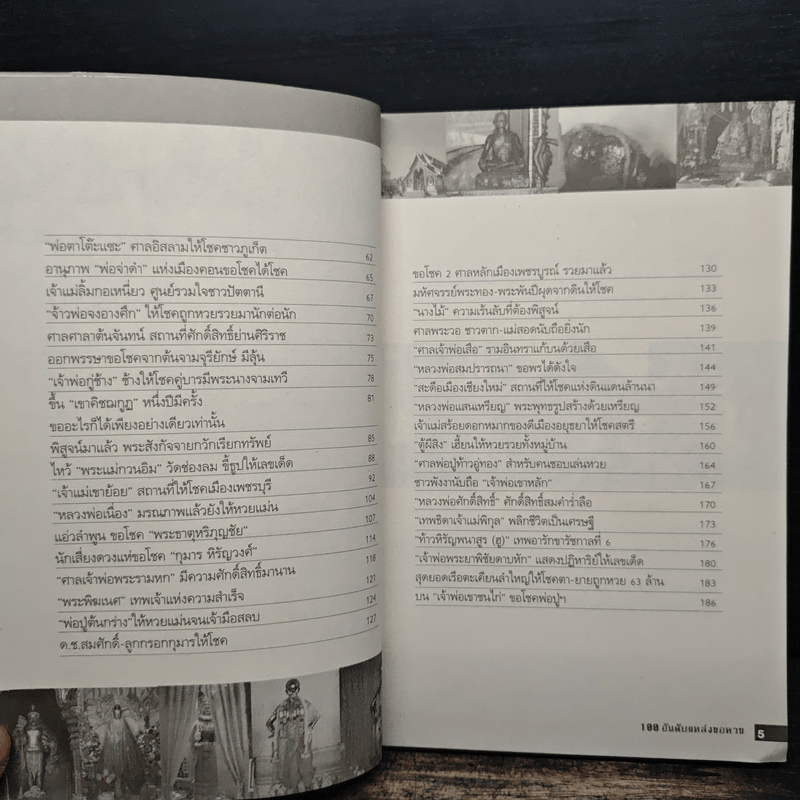 "พ่อตาโต๊ะแซะ" ศาลอิสลามให้โชคชาวภูเก็ต 62
อานุภาพ "พ่อจ่าดำ" แห่งเมืองคอนขอโชคได้โชค 65
เจ้าแม่ลิ้มกอเหนี่ยว ศูนย์รวมใจชาวปัตตานี 67
"จ้าวพ่อจงอางศึก" ให้โชคถูกหวยรวยมานักต่อนัก 70
ศาลศาลาต้นจันทน์ สถานที่ศักดิ์สิทธิ์ย่านศิริราช 73
ออกพรรษาขอโชคจากต้นจามจุรียักษ์ มีลุ้น 75
"เจ้าพ่อกู่ช้าง" ช้างให้โชคคู่บารมีพระนางจามเทวี 78
ขึ้น "เขาคิชฌกูฏ" หนึ่งปีมีครั้ง 81
ขออะไรก็ได้เพียงอย่างเดียวเท่านั้น
พิสูจน์มาแล้ว พระสังกัจจายกวักเรียกทรัพย์ 85
ไหว้ "พระแม่กวนอิม" วัดช่องลม ขี้ธูปให้เลขเด็ด 88
"เจ้าแม่เขาย้อย" สถานที่ให้โชคเมืองเพชรบุรี 92
"หลวงพ่อเนื่อง" มรณภาพแล้วยังให้หวยแม่น 104
แอ่วลำพูน ขอโชค "พระธาตุหริภุญชัย" 107
นักเสี่ยงดวงแห่ขอโชค "กุมาร หิรัญวงค์" 114
"ศาลเจ้าพ่อพระรามหก" มีความศักดิ์สิทธิ์มานาน 118
"พระพิฆเนศ" เทพเจ้าแห่งความสำเร็จ 121
"พ่อปู่ต้นกร่าง"ให้หวยแม่นจนเจ้ามือสลบ 124
ด.ช.สมศักดิ์-ลูกกรอกกุมารให้โชค 127
ขอโชค 2 ศาลหลักเมืองเพชรบูรณ์ รวยมาแล้ว 130
มหัศจรรย์พระทอง-พระพันปีผุดจากดินให้โชค 133
"นางไม้" ความเร้นลับที่ต้องพิสูจน์ 136
ศาลพระวอ ชาวตาก-แม่สอดนับถือยิ่งนัก 139
"ศาลเจ้าพ่อเสือ" รามอินทราแก้บนด้วยเสือ 141
"หลวงพ่อสมปรารถนา" ขอพรได้ดังใจ 144
"สะดือเมืองเชียงใหม่" สถานที่ให้โชคแห่งดินแดนล้านนา 149
"หลวงพ่อแสนเหรียญ" พระพุทธรูปสร้างด้วยเหรียญ 152
เจ้าแม่สร้อยดอกหมากของดีเมืองอยุธยาให้โชคสตรี 156
"ตู้ผีสิง" เฮี้ยนให้หวยรวยทั้งหมู่บ้าน 160
"ศาลพ่อปู่ท้าวอู่ทอง" สำหรับคนชอบเล่นหวย 164
ชาวพังงานับถือ "เจ้าพ่อเขาหลัก" 167
"หลวงพ่อศักดิ์สิทธิ์" ศักดิ์สิทธิ์สมคำร่ำลือ 170
"เทพธิดาเจ้าแม่พิกุล" พลิกชีวิตเป็นเศรษฐี 173
"ท้าวหิรัญพนาสูร (ฮู)" เทพอารักขารัชกาลที่ 6 176
"เจ้าพ่อพระยาพิชัยดาบหัก" แสดงปฏิหาริย์ให้เลขเด็ด 180
สุดยอดเรือตะเคียนลำใหญ่ให้โชคตา-ยายถูกหวย 63 ล้าน 183
บน "เจ้าพ่อเขาชนไก่" ขอโชคพ่อปู่ฯ 186
100 อันดับแหล่งขอหวย 5